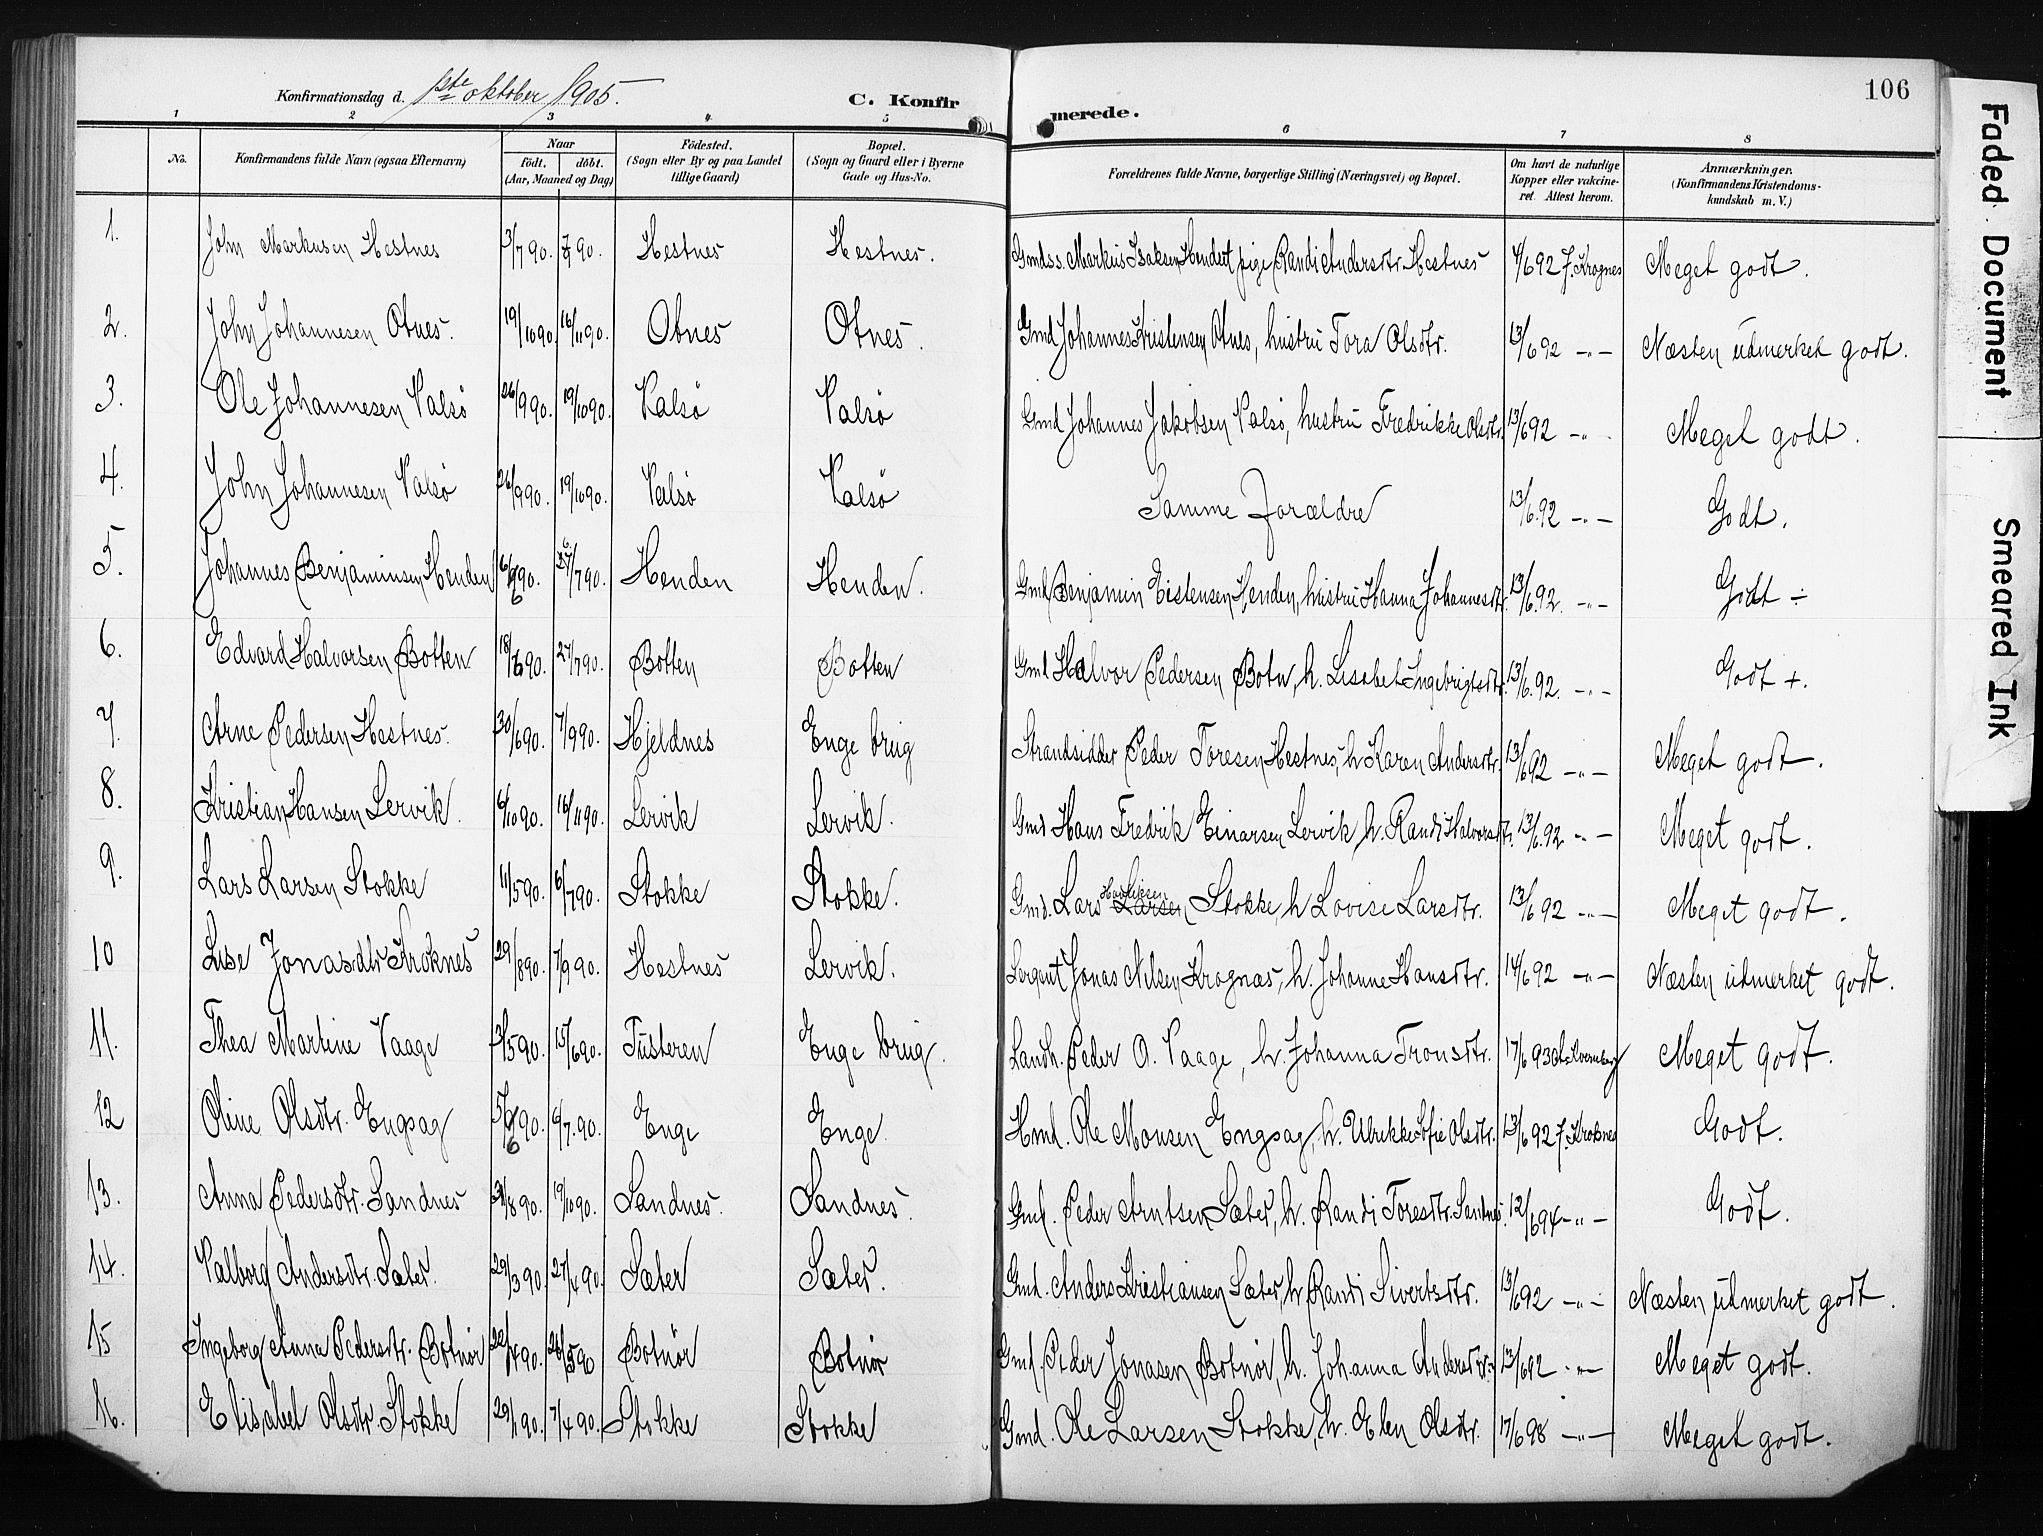 Konfirmationsdag d. 1ste oktober 1905. C. Konfirmerede. 106
1 2 3 4 5 6 7 8
No. Konfirmandens fulde Navn (ogsaa Efternavn) Naar født. døbt. (Aar, Maaned og Dag) Fødested. (Sogn eller By og paa Landet tillige Gaard) Bopæl. (Sogn og Gaard eller i Byerne Gade og Hus-No. Forældrenes fulde Navne, borgerlige Stilling (Næringsvei) og Bopæl. Om havt de naturlige Kopper eller vakcineret. Attest herom. Anmærkninger. (Konfirmandens Kristendomskundskab m. V.)
1. John Markusen Hestnes 3/7 90. 7/9 90. Hestnes Hestnes. Gmdss. Markus Isaksen Hendset pige Randi Andersdtr. Hestnes 4/6 92 J. Krognes Meget godt.
2. John Johannesen Otnes. 19/10 90. 16/11 90. Otnes Otnes. Gmd Johannes Kristensen Otnes, hustru Tora Olsdtr. 13/6 92 -„- Næsten udmerket godt.
3. Ole Johannesen Valsø 26/9 90. 19/10 90. Valsø Valsø Gmd Johannes Jakobsen Valsø, hustru Fredrikke Olsdtr. 13/6 92 -„- Meget godt.
4. John Johannesen Valsø 26/9 90. 19/10 90. Valsø Valsø Samme Forældre 13/6. 92 -„- Godt.
5. Johannes Benjaminsen Henden 6/6 90. 27/7 90. Henden Henden. Gmd Benjamin Eistensen Henden, hustru Hanna Johannesdtr. 13/6. 92. -„- Godt ÷
6. Edvard Halvorsen Botten 18/6 90. 27/7 90. Botten Botten Gmd Halvor Pedersen Botn, h. Lisabet Ingebrigtsdtr. 13/6. 92. -„- Godt +.
7. Arne Pedersen Hestnes. 30/6 90. 7/9 90. Hjeldnes Enge brug Strandsidder Peder Toresen Hestnes, h Karen Andersdtr. 13/6 92 -„- Meget godt.
8. Kristian Hansen Lervik. 6/10 90. 16/11 90. Lervik Lervik. Gmd Hans Fredrik Einarsen Lervik h. Randi Halvorsdtr. 13/6. 92 -„- Meget godt.
9. Lars Larsen Stokke 11/5 90. 6/7 90. Stokke Stokke. Gmd. Lars Larsen Stokke, h Lovise Larsdtr. 13/6 92 -„- Meget godt.
10 Lise Jonasdtr Kroknes 29/8 90. 7/9 90. Hestnes Lervik. Sergent Jonas Nilsen Krognæs, h. Johanne Hansdtr. 14/6 92 -„- Næsten udmerket godt.
11. Thea Martine Vaage 31/5 90. 15/6 90. Tusteren Enge brug. Landh. Peder O. Vaage, h. Johanna Tronsdtr. 17/6 93 Meget godt.
12 Oline Olsdtr. Engsag 5/6 90. 6/7. 90. Enge Enge. Hmd. Ole Monsen Engsag, h. Ulrikke Sofie Olsdtr. 13/6 92 J. Kroknes Godt.
13. Anna Pedersdtr. Sandnes 31/8 90. 19/10 90. Sandnes. Sandnes. Gmd. Peder Arntsen Sæter, h. Randi Toresdtr. Sandnes. 12/6 94 -„- Godt.
14. Valborg Andersdtr. Sæter. 29/3 90. 27/4 90. Sæter Sæter. Gmd. Anders Kristiansen Sæter, h Randi Sivertsdtr. 13/6 92 -„- Næsten udmerket godt.
15 Ingeborg Anna Pedersdtr. Botnør 22/4 90. 26/5 90 Botnør Botnør Gmd Peder Jonasen Botnør, h. Johanna Andersdtr. 13/6 92 -„- Meget godt.
16. Elisabet Olsdtr Stokke 29/1 90. 7/4 90. Stokke Stokke Gmd. Ole Larsen Stokke, h. Elen Olsdtr. 17/6 98 -„- Meget godt.
Faded Document
Smeared Ink